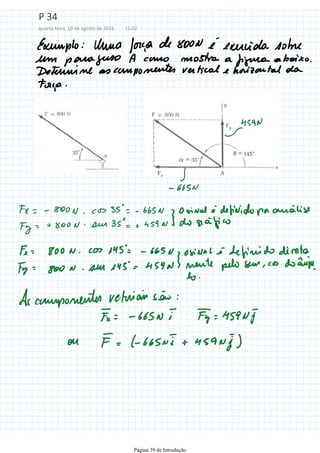 P 34
quarta-feira, 10 de agosto de 2016 15:02
Exemplo: Uma força de 800N é exercida sobre
um parafuso A como mostra a figura abaixo.
Determine as componentes vertical e horizontal da
força.
F = 800 N
35°
A
F = 800 N
y
Fy
459N
α = 35°
θ = 145°
x
Fx
A
-665N
Fx = - 800N . cos 35° = - 665N } O sinal é definido por análise
Fy = + 800N . sen 35° = + 459N } do gráfico
Fx = 800 N . cos 145° = - 665N } O sinal é definido direta
Fy = 800 N . sen 145° = 459N } mente pelo sen, co do ângu
lo.
As componentes vetoriais são:
Fx = - 665N i Fy = 459N j
ou F = (-665N i + 459N j)
Página 39 de Introdução